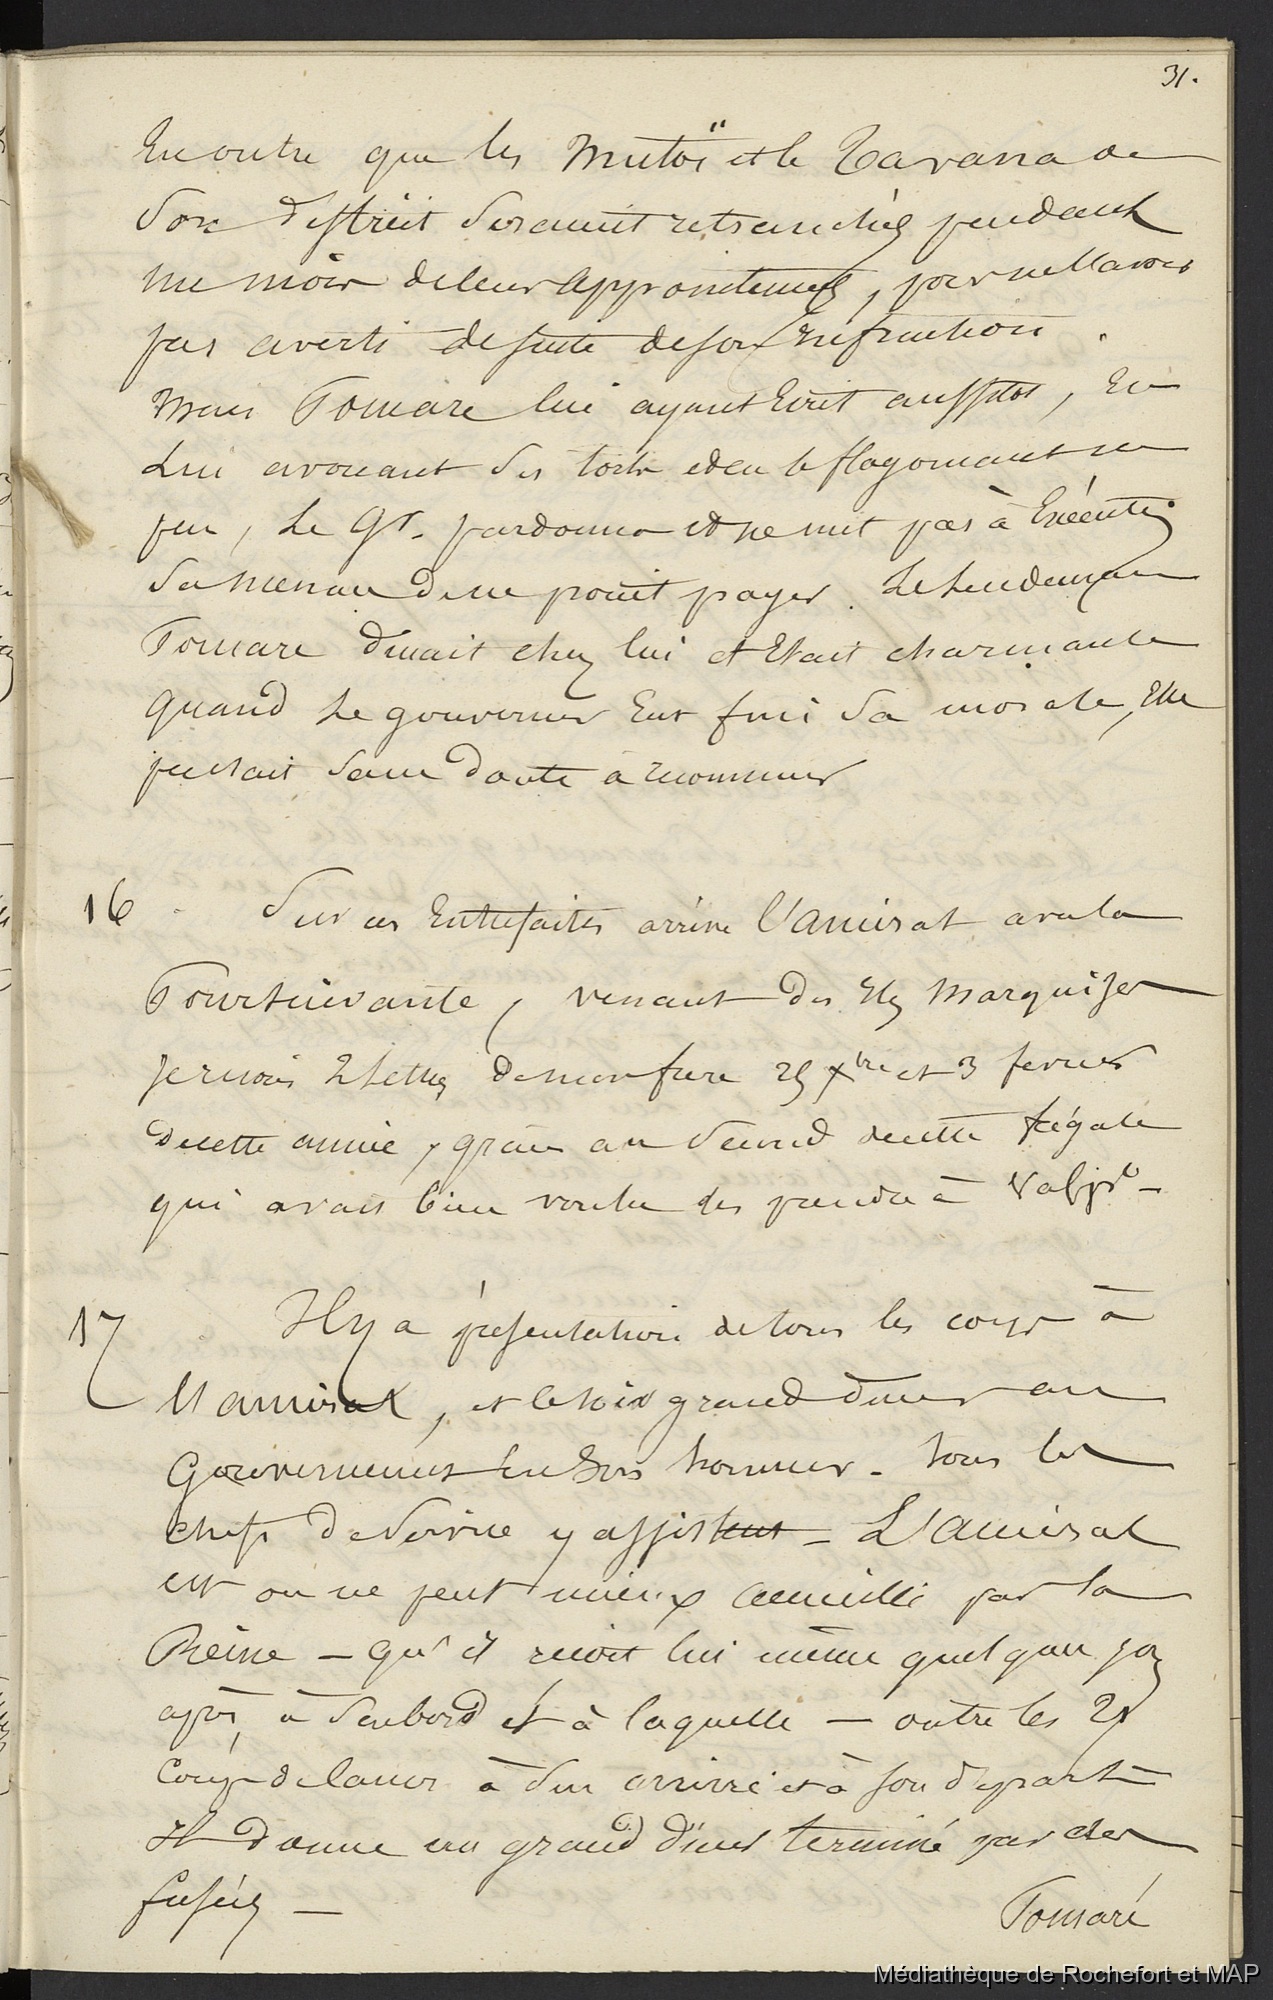 31.
En outre que les Mutoï et le Tavana de
son district seraient retranchés pendant
un mois de leurs appointemens, pour ne l'avoir
pas averti de suite de son infraction.
Mais Pomare lui ayant Ecrit aussitôt, En
lui avouant ses torts et en le flagornant un
peu, le Gr. pardonna et ne mit pas à Exécution
sa menace de ne point payer. Le lendemain
Pomare dinait chez lui et Etait charmante
quand le gouverneur Eut fini sa morale, Elle
pensait sans doute à recommencer
16 Sur ces Entrefaites arrive l'amiral avec la
Poursuivante, venant des Iles Marquises
Je reçois 2 lettres de mon frere 25 Xbre et 3 fevrier
de cette année, grace au second de cette frégate
qui avait bien voulu les prendre à Valpo -
17 Il y a présentation de tous les corps à
l'amiral, et le soir grand diner au
Gouvernement En son honneur - tous les
chefs de service y assistent - L'Amiral
est on ne peut mieux accueilli par la
Reine - qu'il reçoit lui même quelques jours
après, à son bord et à laquelle - outre les 21
Coups de canon à son arrivée et à son départ -
Il donne un grand diner terminé par des
fusées -
Pomaré
Médiathèque de Rochefort et MAP